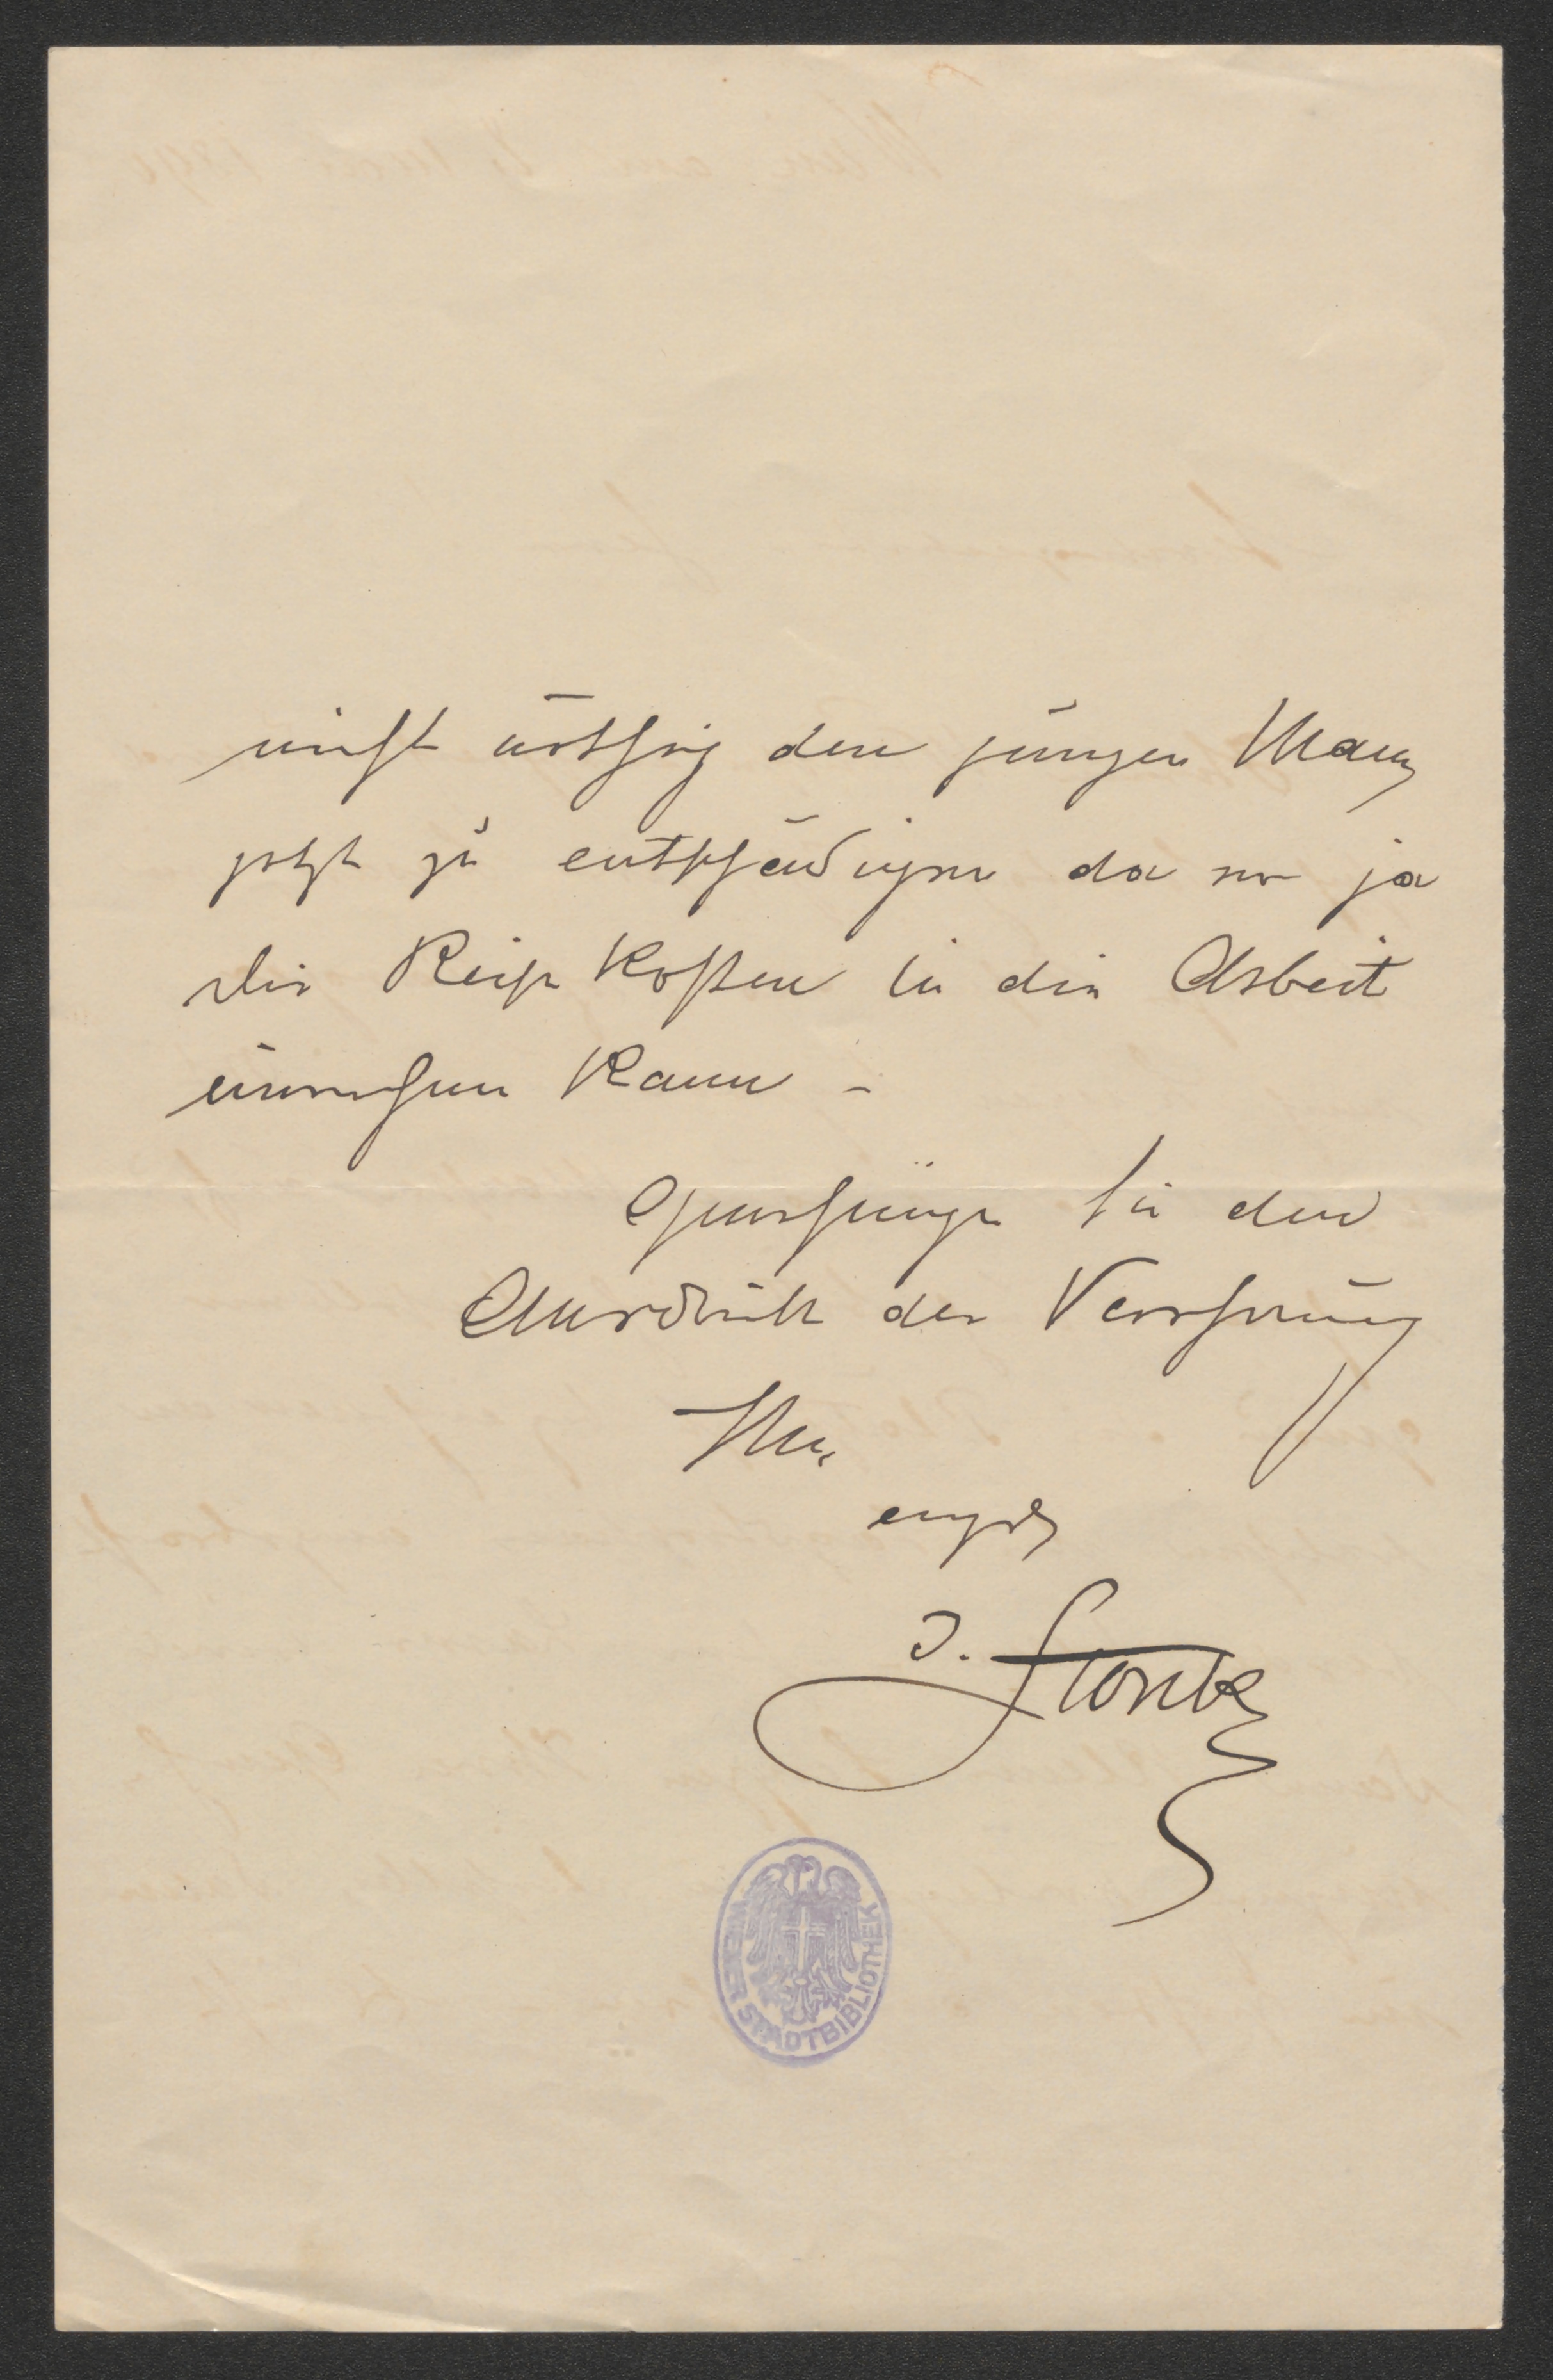 nicht nöthig den jungen Mann
jetzt zu entschädigen da er ja
die Reise Kosten in die Arbeit
einrechnen kann –
Genehmigen Sie den
Ausdruck der Verehrung
Ihres
ergeb
J. Storck
WIENER STADTBIBLIOTHEK